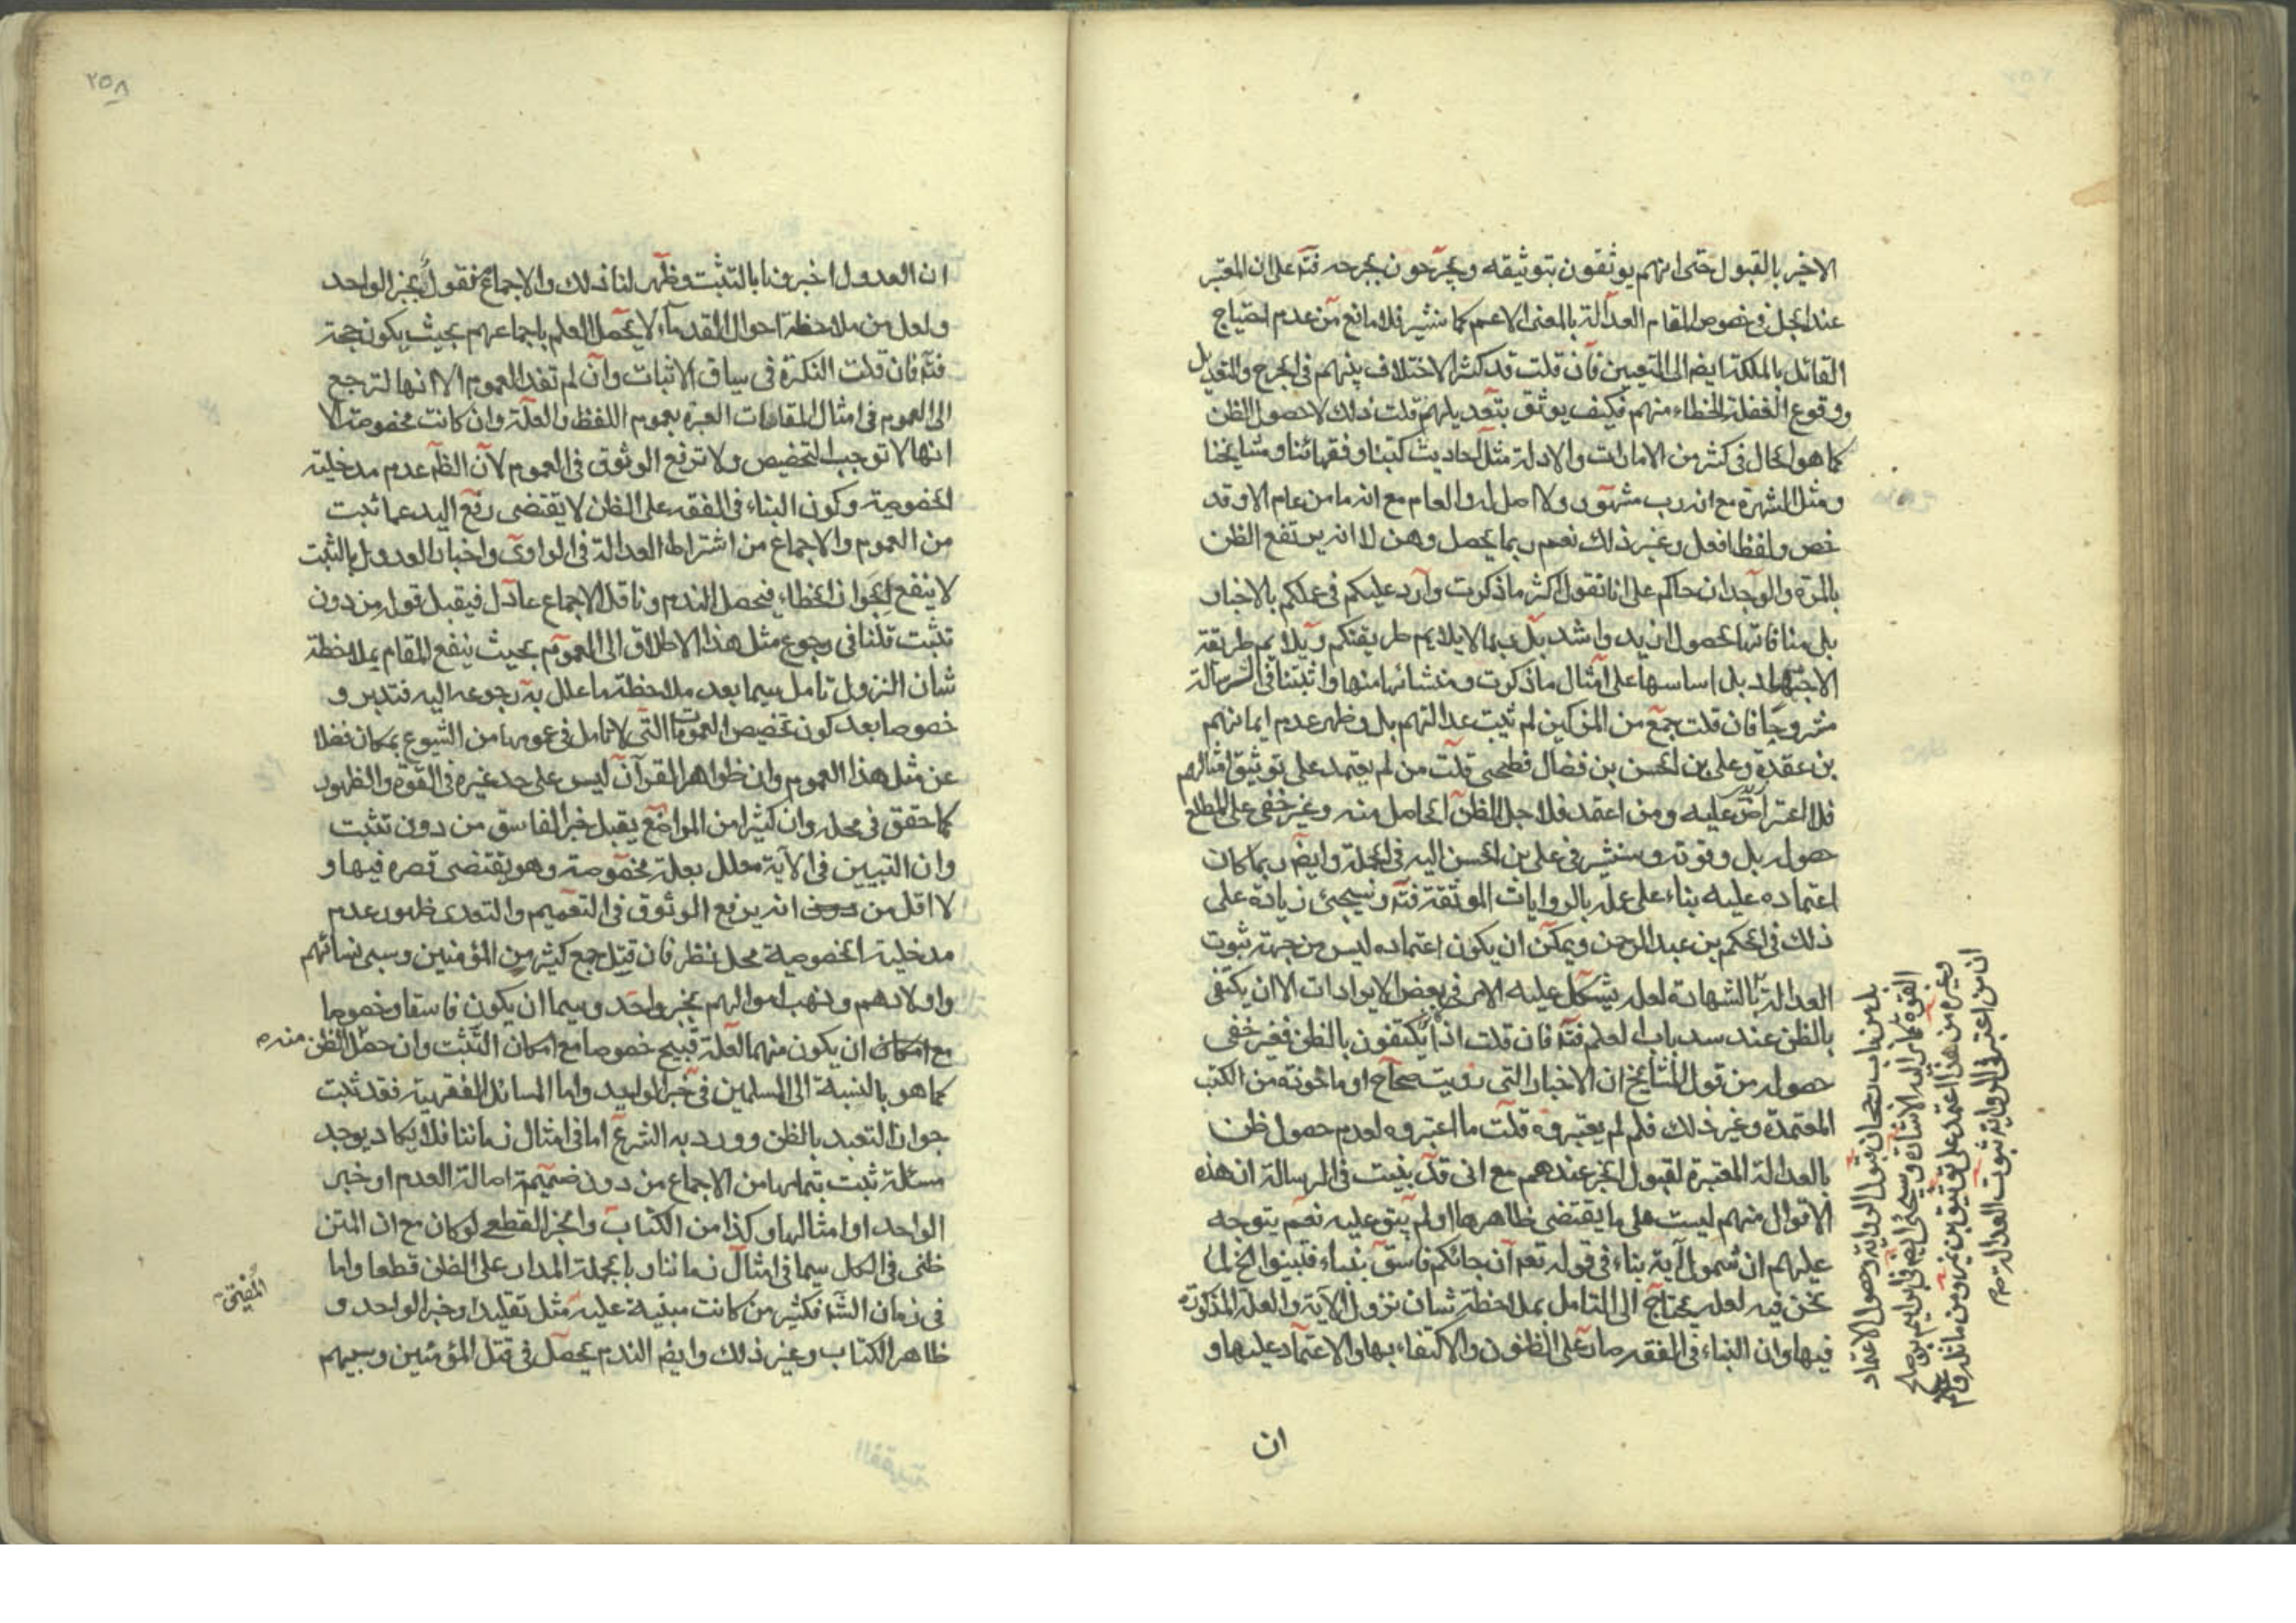 الاخير بالقبول حتى انهم يوثقون بتوثيقه ويجرحون بجرحه فتم على ان المعتبر
عند الجل في خصوص المقام العدالة بالمعنى الاعم كما سنشير فلا مانع من عدم احتياج
القائل بالملكة ايضا الى التعيين فان قلت قد كثر الاختلاف بينهم في الجرح والتعديل
ووقوع الغفلة والخطاء منهم فكيف يوثق بتعديلهم قلت ذلك لا حصول الظن
كما هو الحال في كثير من الامارات والادلة مثل احاديث كتبنا وفقهائنا ومشايخنا
ومثل الشهرة مع انه رب مشهور ولا اصل له والعام مع انه ما من عام الا وقد
خص ولفظ افعل وغير ذلك نعم ربما يحصل وهن لا انه يرتفع الظن
بالمرة والوجدان حاكم على انا نقول اكثر ما ذكرت وارد عليكم في عملكم بالاخبار
بلى منافاتها لحصول ازيد واشد بل ربما لا يلايم طريقتكم ويلايم طريقة
الاجتهاد بل اساسها على امثال ما ذكرت ومنشائها منها واثبتنا في الرسالة
مشروحا فان قلت جمع من المزكين لم يثبت عدالتهم بل وظهر عدم ايمانهم
بن عقدة وعلي بن الحسن بن فضال فطحى قلت من لم يعتمد على توثيق امثالهم
فلا اعتراض عليه ومن اعتمد فلاجل الظن الحاصل منه وغير خفي على المطلع
حصوله بل وقوته وسنشير في علي بن الحسن اليه في الجملة وايضا ربما كان
اعتماده عليه بناء على عمله بالروايات الموثقة فتم وسيجئ زيادة على
ذلك في الحكم بن عبد الرحمن ويمكن ان يكون اعتماده ليس من جهة ثبوت
العدالة بالشهادة لعله يشكل عليه الامر في بعض الايرادات الا ان يكتفى
بالظن عند سد باب العلم فتم فان قلت اذا يكتفون بالظن فغير خفى
حصوله من قول المشايخ ان الاخبار التي رويت صحاح او ماخوذة من الكتب
المعتمدة وغير ذلك فلم لم يعتبروه قلت ما اعتبروه لعدم حصول ظن
بالعدالة المعتبرة لقبول الخبر عندهم مع اني قد بينت في الرسالة ان هذه
الاقوال منهم ليست على ما يقتضى ظاهرها او لم يبق عليه نعم يتوجه
عليهم ان شمول آية بناء في قوله تعم ان جائكم فاسق بنباء فتبينوا الخ لما
نحن فيه لعله يحتاج الى التامل بملاحظة شان نزول الآية والعلة المذكورة
فيها وان البناء في الفقه صار على الظنون والاكتفاء بها والاعتماد عليها و
ان
بل من باب رجحان قبول الرواية وحصول الاعتماد
القوة كما مر اليه الاشارة وسيجئ ايضا في ابراهيم بن صالح
وغيره من هذا اعتمد على توثيق بن نمير ومن ماثله
ان من اعتبر في الرواية ثبوت العدالة
٢٥٨
ان العدول اخبرونا بالتثبت وظهر لنا ذلك والاجماع منقول بخبر الواحد
ولعل من ملاحظة احوال القدماء لا يحصل العلم باجماعهم بحيث يكون حجة
فتم فان قلت النكرة في سياق الاثبات وان لم تفد العموم الا انها لترجع
الى العموم في امثال المقامات العبرة بعموم اللفظ والعلة وان كانت مخصوصة الا
انها لا توجب التخصيص ولا ترفع الوثوق في العموم لان الظم عدم مدخلية
الخصوصية وكون البناء في الفقه على الظن لا يقتضى رفع اليد عما ثبت
من العموم والاجماع من اشتراط العدالة في الراوى واخبار العدول بالثبت
لا ينفع لجواز الخطاء فيحصل الندم وناقل الاجماع عادل فيقبل قوله من دون
تثبت قلنا في رجوع مثل هذا الاطلاق الى العموم بحيث ينفع المقام بملاحظة
شان النزول تامل سيما بعد ملاحظة ما علل به رجوعه اليه فتدبر و
خصوصا بعد كون تخصيص العمومات التي لا تامل في عمومها من الشيوع بمكان فضلا
عن مثل هذا العموم وان ظواهر القرآن ليس على حد غيره في القوة والظهور
كما حقق في محله وان كثيرا من المواضع يقبل خبر الفاسق من دون تثبت
وان التبيين في الآية معلل بعلة مخصوصة وهو يقتضى قصره فيها و
لا اقل من انه يرفع الوثوق في التعميم والتعدى ظهور عدم
مدخلية الخصوصية محل نظر فان قتل جمع كثير من المؤمنين وسبى نسائهم
واولادهم ونهب اموالهم بخبر واحد وسيما ان يكون فاسقا وخصوصا
مع امكان ان يكون منهما لعله قبيح خصوصا مع امكان التثبت وان حصل الظن منه
كما هو بالنسبة الى المسلمين في خبر الوليد واما المسائل الفقهية فقد ثبت
جواز التعبد بالظن وورد به الشرع اما في امثال زماننا فلا يكاد يوجد
مسئلة ثبت بتمامها من الاجماع من دون ضميمة اصالة العدم او خبر
الواحد او امثالها وكذا من الكتاب والخبر القطعي لو كان مع ان المتن
ظنى في الكل سيما في امثال زماننا وبالجملة المدار على الظن قطعا واما
في زمان الشم فكثير من كانت مبنية عليه مثل تقليد او خبر الواحد و
المفتى
ظاهر الكتاب وغير ذلك وايضا الندم يحصل في قتل المؤمنين وسبيهم
الفقهية